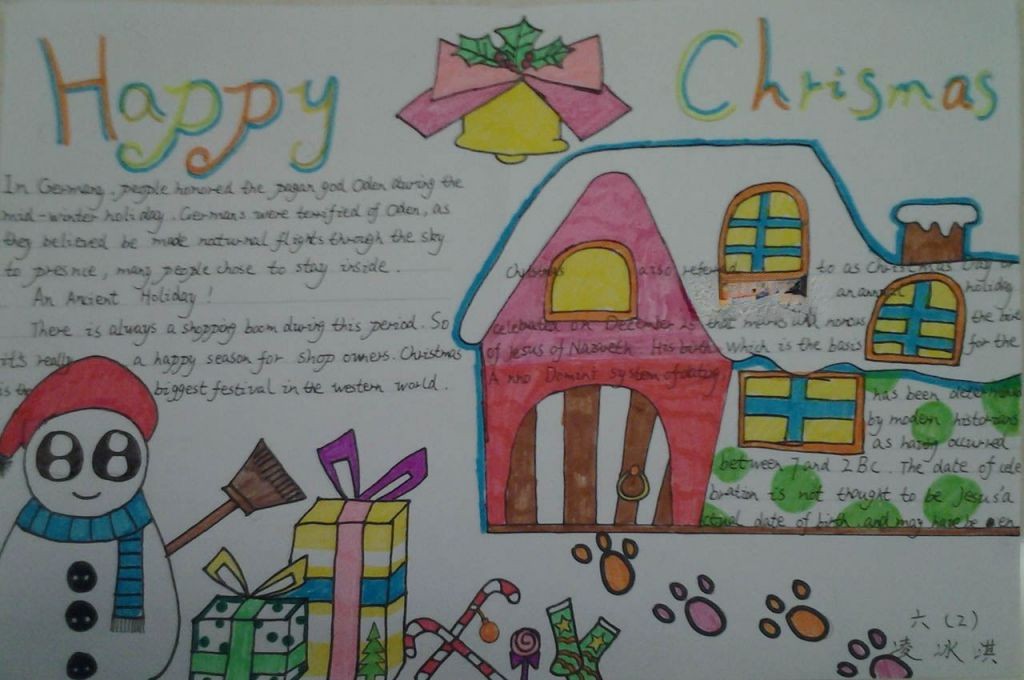 Happy Chrismas
In Germany, people honored the pagan god Oden during the
mid-winter holiday. Germans were terrified of Oden, as
they believed he made nocturnal flights through the sky
to presnce, many people chose to stay inside.
An Ancient Holiday!
There is always a shopping boom during this period. So
it's really a happy season for shop owners. Christmas
is the biggest festival in the western world.
Christmas also referred to as Christmas Day or
an annual holiday
celebrated on December 25 that marks and honors the birth
of Jesus of Nazareth His birth which is the basis for the
Anno Domini system of dating
has been determined
by modern historians
as having occurred
between 7 and 2 BC. The date of cele
bration is not thought to be Jesus'a
ctual date of birth, and may have been
六(2)
凌冰淇